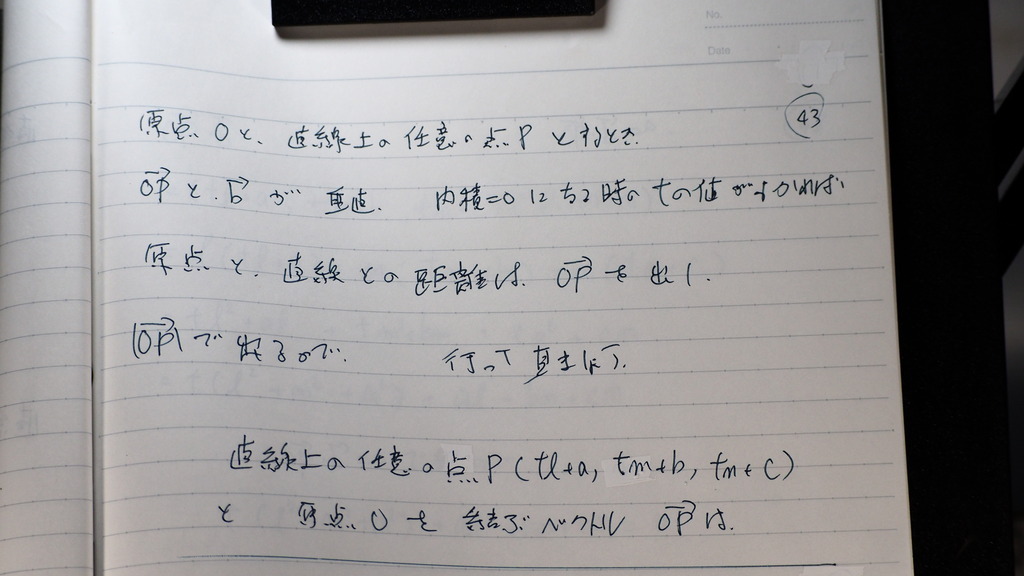 No.
Date
43
原点Oと、直線上の任意の点Pとするとき、
OPと、bが垂直、内積=0になる時のtの値がわかれば
原点と、直線との距離は、OPを出し、
|OP|で出るので、
直線上の任意の点P(tl+a, tm+b, tn+c)
と 原点Oを結ぶベクトル OPは、